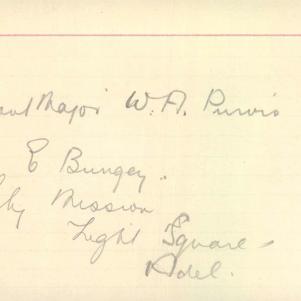 Major W. A. Purvis
E Bungey.
Mission
Light Square -
Adel.